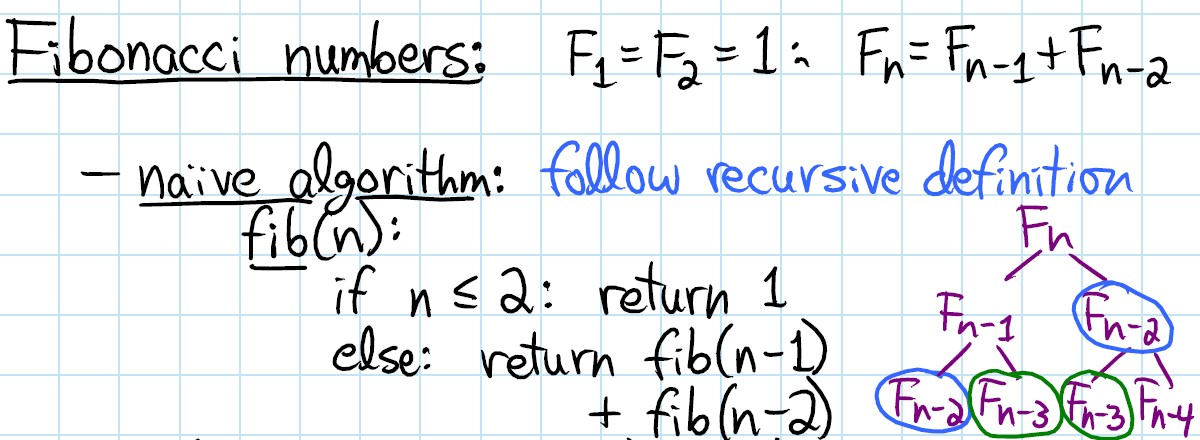 Fibonacci numbers: F₁ = F₂ = 1; Fₙ = Fₙ₋₁ + Fₙ₋₂
- naïve algorithm: follow recursive definition
fib(n):
if n ≤ 2: return 1
else: return fib(n-1)
+ fib(n-2)
Fₙ
Fₙ₋₁ Fₙ₋₂
Fₙ₋₂ Fₙ₋₃ Fₙ₋₃ Fₙ₋₄